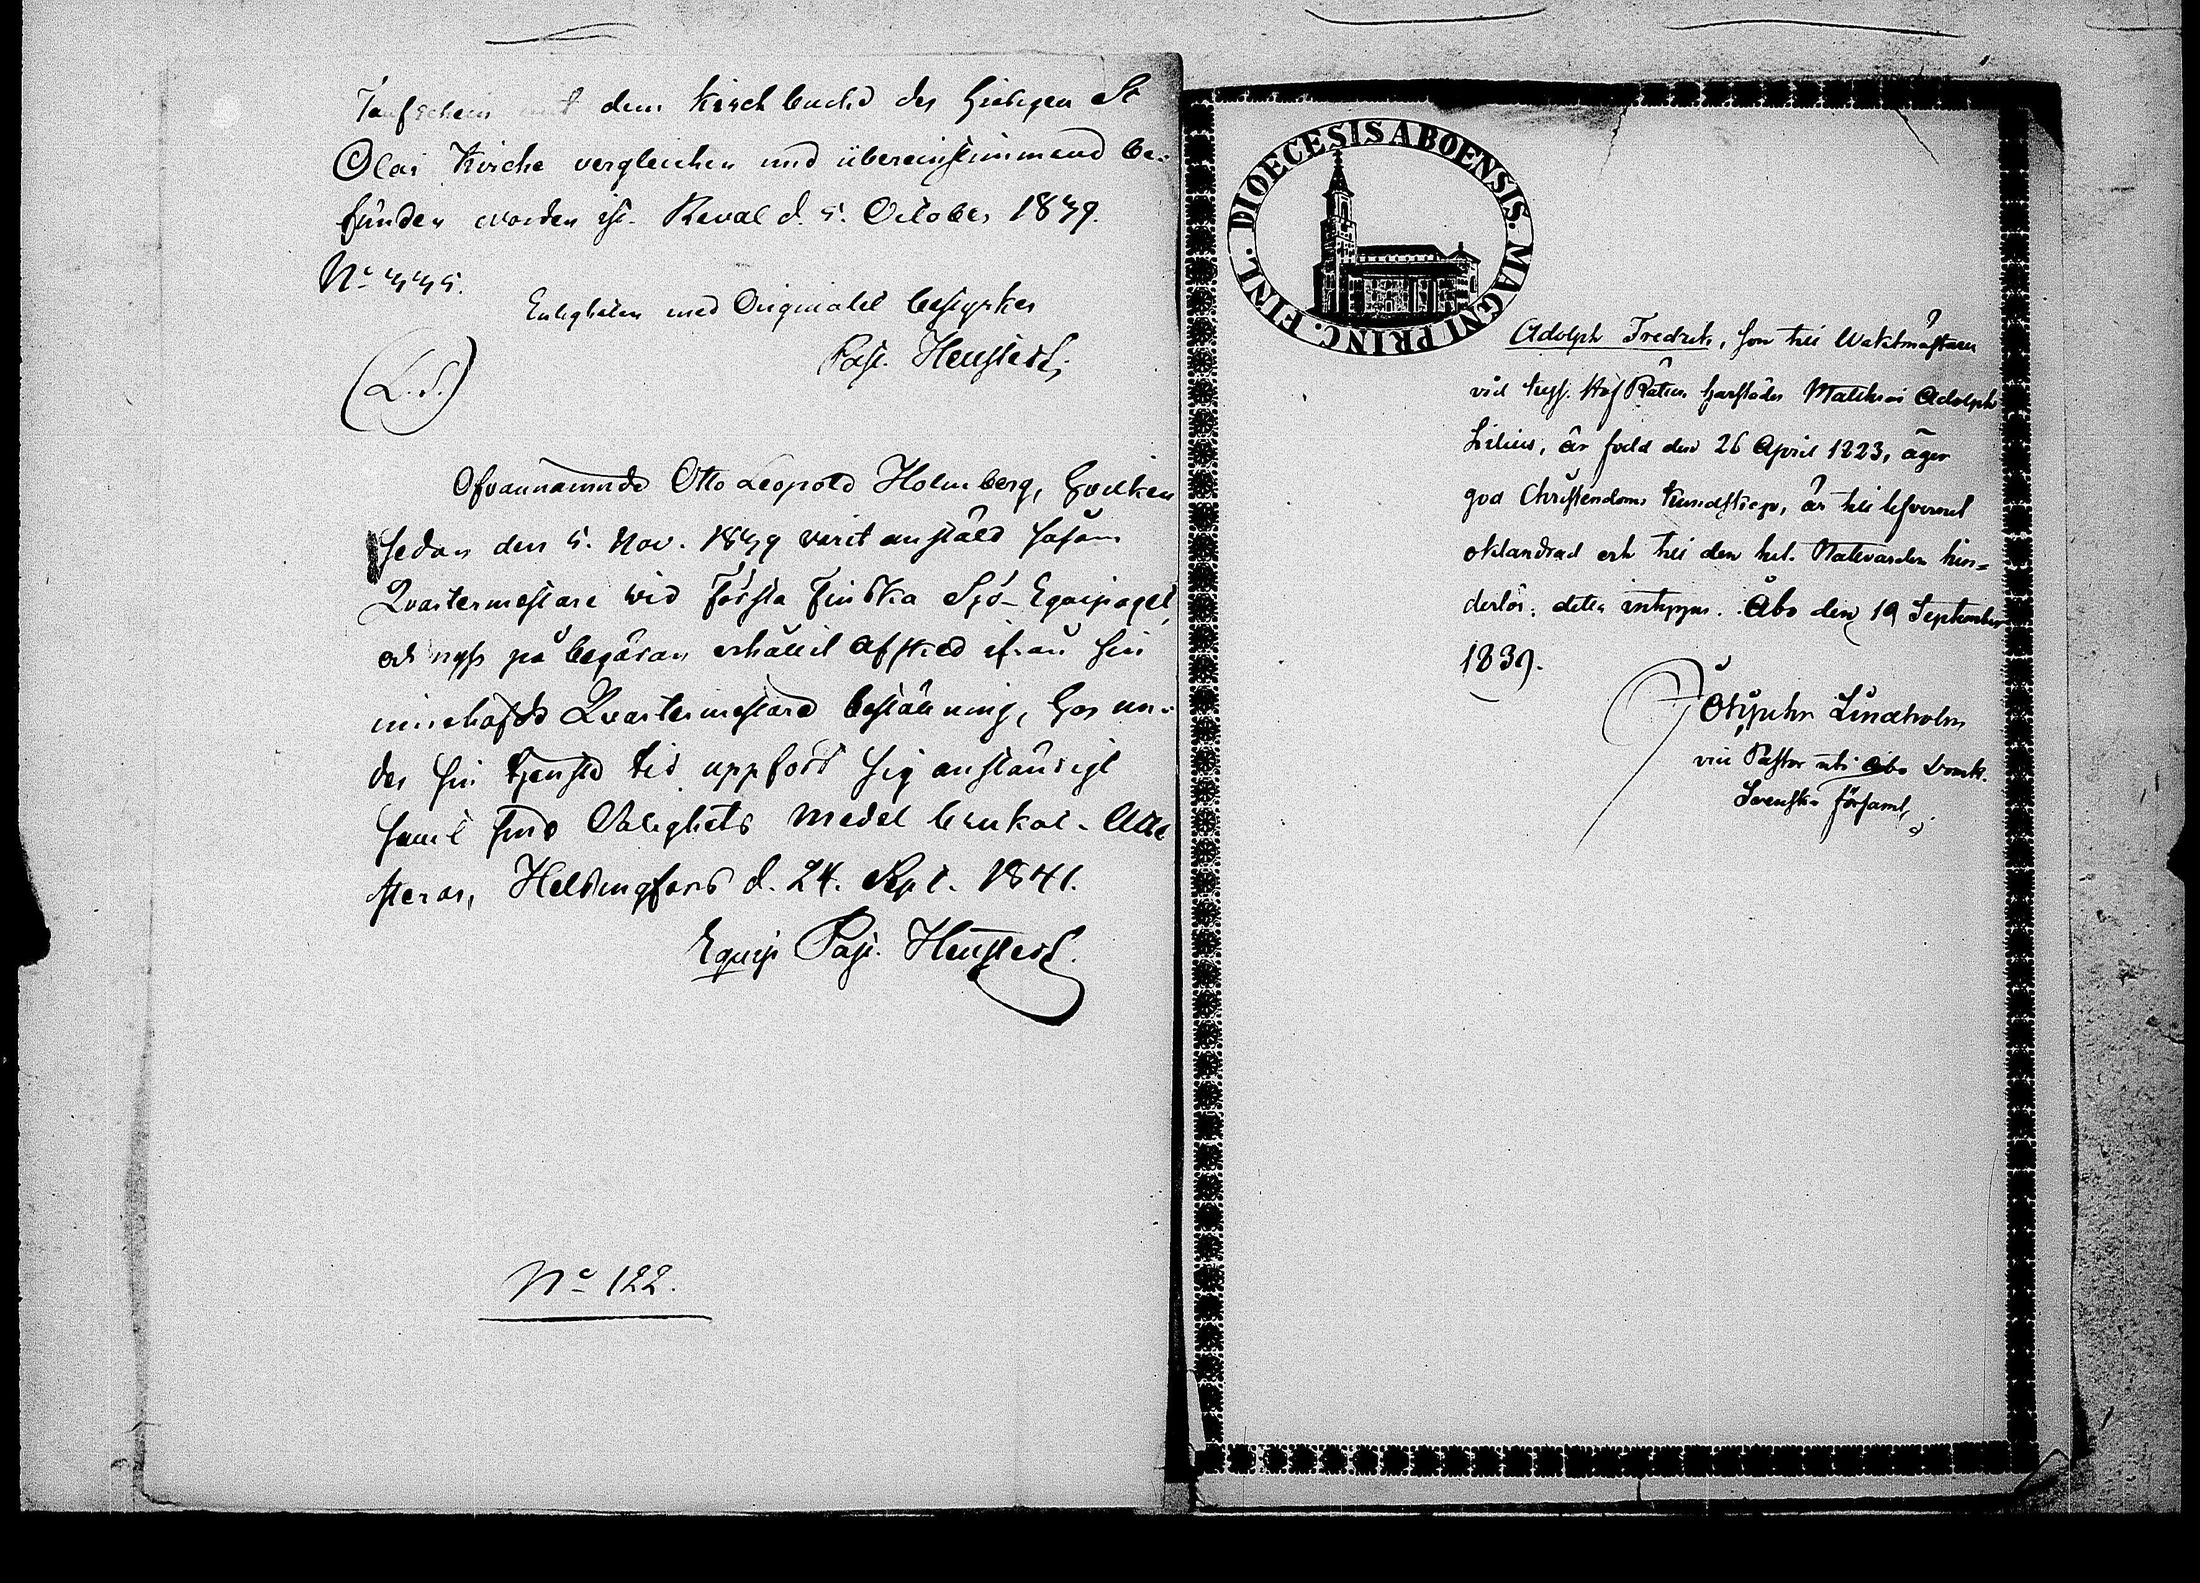 Taufschein mit dem Kirchbuche der hiesigen St
Olai Kirche vergleichen und übereinstimmend be-
funden worden ist. Reval d. 5. October 1839.
No 445.
Enligheten med Originalet bestyrker
Past. Heusterb.
(L.S.)
Ofvannämnde Otto Leopold Holmberg, hvilken
sedan den 5. Nov. 1839 varit anstäld såsom
Qvartermästare wid Första Finska Sjö-Equipaget,
och nyss på begäran erhållit afsked ifrån sin
innehafde Qvartermästare beställning, har un-
der sin tjenste tid uppfört sig anständigt
samt sine Salighets medel brukat. Atte-
steras, Helsingfors d. 24. Sept. 1841.
Equip Past.
No 122.
DIOECESIS ABOENSIS. MAGNI PRINC. FINL.
Adolph Fredrik, son till Waktmästaren
vid Kejs. Hof Rätten härstädes Matthias Adolph
Lilius, är född den 26 April 1823, äger
god Christendoms kundskap, är till lefvernet
oklandrad och till den hel. Nattvarden hin-
derlös; detta intygas. Åbo den 19 September
1839.
Lindholm
vice Pastor uti Åbo Domk.
Svenska församl.